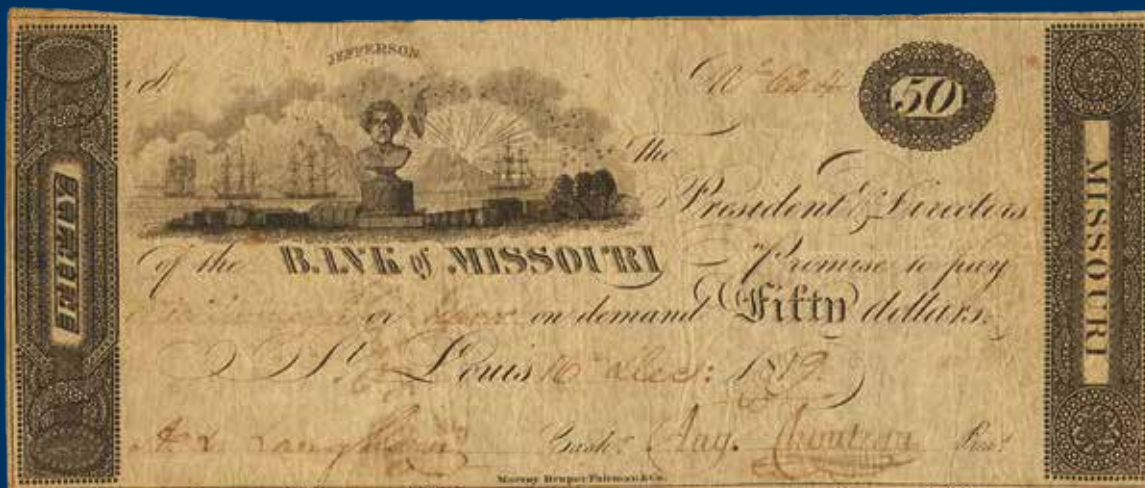 JEFFERSON
No 624
50
The
President & Directors
of the BANK of MISSOURI Promise to pay
or on demand Fifty dollars.
St Louis 10 Dec: 1819.
Cashr. Aug. Chouteau Prest.
Murray Draper Fairman & Co.
MISSOURI